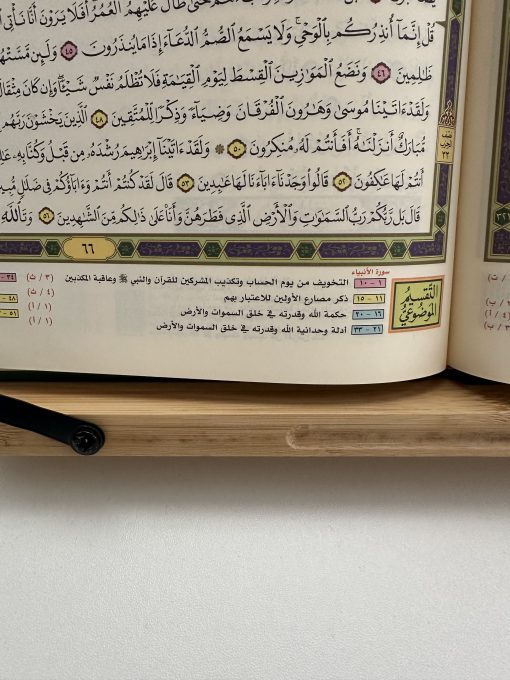 طَالَ عَلَيْهِمُ ٱلْعُمُرُ أَفَلَا يَرَوْنَ أَنَّا نَأْتِى
قُلْ إِنَّمَآ أُنذِرُكُم بِٱلْوَحْىِ وَلَا يَسْمَعُ ٱلصُّمُّ ٱلدُّعَآءَ إِذَا مَا يُنذَرُونَ ٤٥ وَلَئِن مَّسَّتْهُمْ
ظَٰلِمِينَ ٤٦ وَنَضَعُ ٱلْمَوَٰزِينَ ٱلْقِسْطَ لِيَوْمِ ٱلْقِيَٰمَةِ فَلَا تُظْلَمُ نَفْسٌ شَيْـًٔا وَإِن كَانَ مِثْقَالَ
وَلَقَدْ ءَاتَيْنَا مُوسَىٰ وَهَٰرُونَ ٱلْفُرْقَانَ وَضِيَآءً وَذِكْرًا لِّلْمُتَّقِينَ ٤٨ ٱلَّذِينَ يَخْشَوْنَ رَبَّهُم
مُّبَارَكٌ أَنزَلْنَٰهُ أَفَأَنتُمْ لَهُۥ مُنكِرُونَ ٥٠ ۞ وَلَقَدْ ءَاتَيْنَآ إِبْرَٰهِيمَ رُشْدَهُۥ مِن قَبْلُ وَكُنَّا بِهِۦ
أَنتُمْ لَهَا عَٰكِفُونَ ٥٢ قَالُوا۟ وَجَدْنَآ ءَابَآءَنَا لَهَا عَٰبِدِينَ ٥٣ قَالَ لَقَدْ كُنتُمْ أَنتُمْ وَءَابَآؤُكُمْ فِى ضَلَٰلٍ
قَالَ بَل رَّبُّكُمْ رَبُّ ٱلسَّمَٰوَٰتِ وَٱلْأَرْضِ ٱلَّذِى فَطَرَهُنَّ وَأَنَا۠ عَلَىٰ ذَٰلِكُم مِّنَ ٱلشَّٰهِدِينَ ٥٦ وَتَٱللَّهِ
نصف الحزب ٣٣
٦٦
التقسيم الموضوعي
سورة الأنبياء
١ - ١٠ التخويف من يوم الحساب وتكذيب المشركين للقرآن والنبي ﷺ وعاقبة المكذبين (٣ / ث)
١١ - ١٥ ذكر مصارع الأولين للاعتبار بهم (٤ / ث)
١٦ - ٢٠ حكمة الله وقدرته في خلق السموات والأرض (١ / أ)
٢١ - ٣٣ أدلة وحدانية الله وقدرته في خلق السموات والأرض (١ / أ)